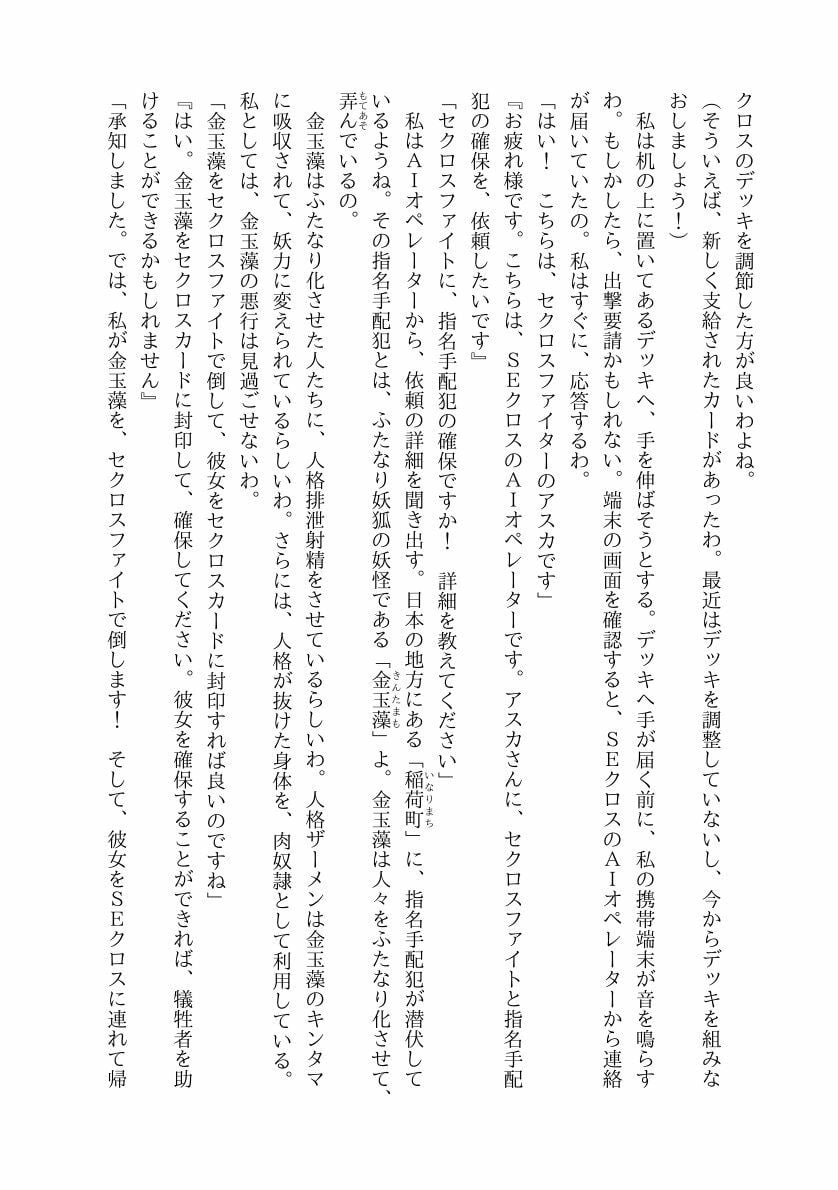 クロスのデッキを調節した方が良いわよね。
(そういえば、新しく支給されたカードがあったわ。最近はデッキを調整していないし、今からデッキを組みな
おしましょう!)
　私は机の上に置いてあるデッキへ、手を伸ばそうとする。デッキへ手が届く前に、私の携帯端末が音を鳴らす
わ。もしかしたら、出撃要請かもしれない。端末の画面を確認すると、ＳＥクロスのＡＩオペレーターから連絡
が届いていたの。私はすぐに、応答するわ。
「はい!　こちらは、セクロスファイターのアスカです」
『お疲れ様です。こちらは、ＳＥクロスのＡＩオペレーターです。アスカさんに、セクロスファイトと指名手配
犯の確保を、依頼したいです』
「セクロスファイトに、指名手配犯の確保ですか!　詳細を教えてください」
　私はＡＩオペレーターから、依頼の詳細を聞き出す。日本の地方にある「稲荷町」に、指名手配犯が潜伏して
いなりまち
いるようね。その指名手配犯とは、ふたなり妖狐の妖怪である「金玉藻」よ。金玉藻は人々をふたなり化させて、
きんたまも
弄んでいるの。
もてあそ
　金玉藻はふたなり化させた人たちに、人格排泄射精をさせているらしいわ。人格ザーメンは金玉藻のキンタマ
に吸収されて、妖力に変えられているらしいわ。さらには、人格が抜けた身体を、肉奴隷として利用している。
私としては、金玉藻の悪行は見過ごせないわ。
「金玉藻をセクロスファイトで倒して、彼女をセクロスカードに封印すれば良いのですね」
『はい。金玉藻をセクロスカードに封印して、確保してください。彼女を確保することができれば、犠牲者を助
けることができるかもしれません』
「承知しました。では、私が金玉藻を、セクロスファイトで倒します!　そして、彼女をＳＥクロスに連れて帰